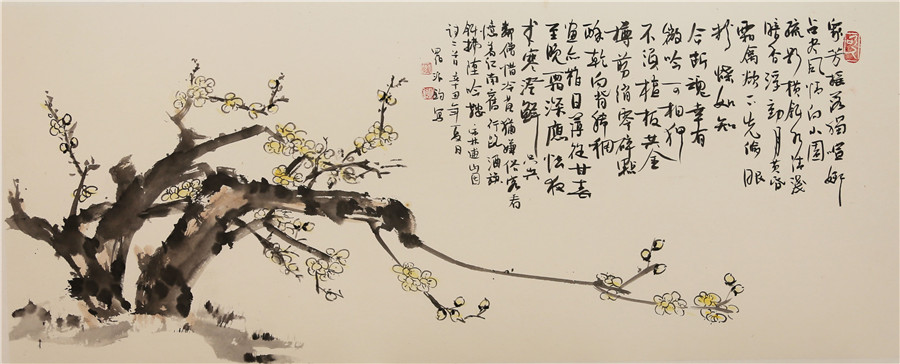 衆芳摇落獨喧妍
占尽风情向小園
疏影横斜水清淺
暗香浮動月黄昏
霜禽欲下先偷眼
粉蝶如知
合断魂幸有
微吟可相狎
不須檀板共金
樽剪绡零碎點
酥乾向背稀稠
画亦難日薄從甘春
至晚霜深應怯夜
来寒澄鲜只共
鄰僧惜冷落猶嫌俗客看
憶着江南舊行路酒旗
斜拂墮吟鞍宋林逋山园
诗二首辛丑年夏日
写